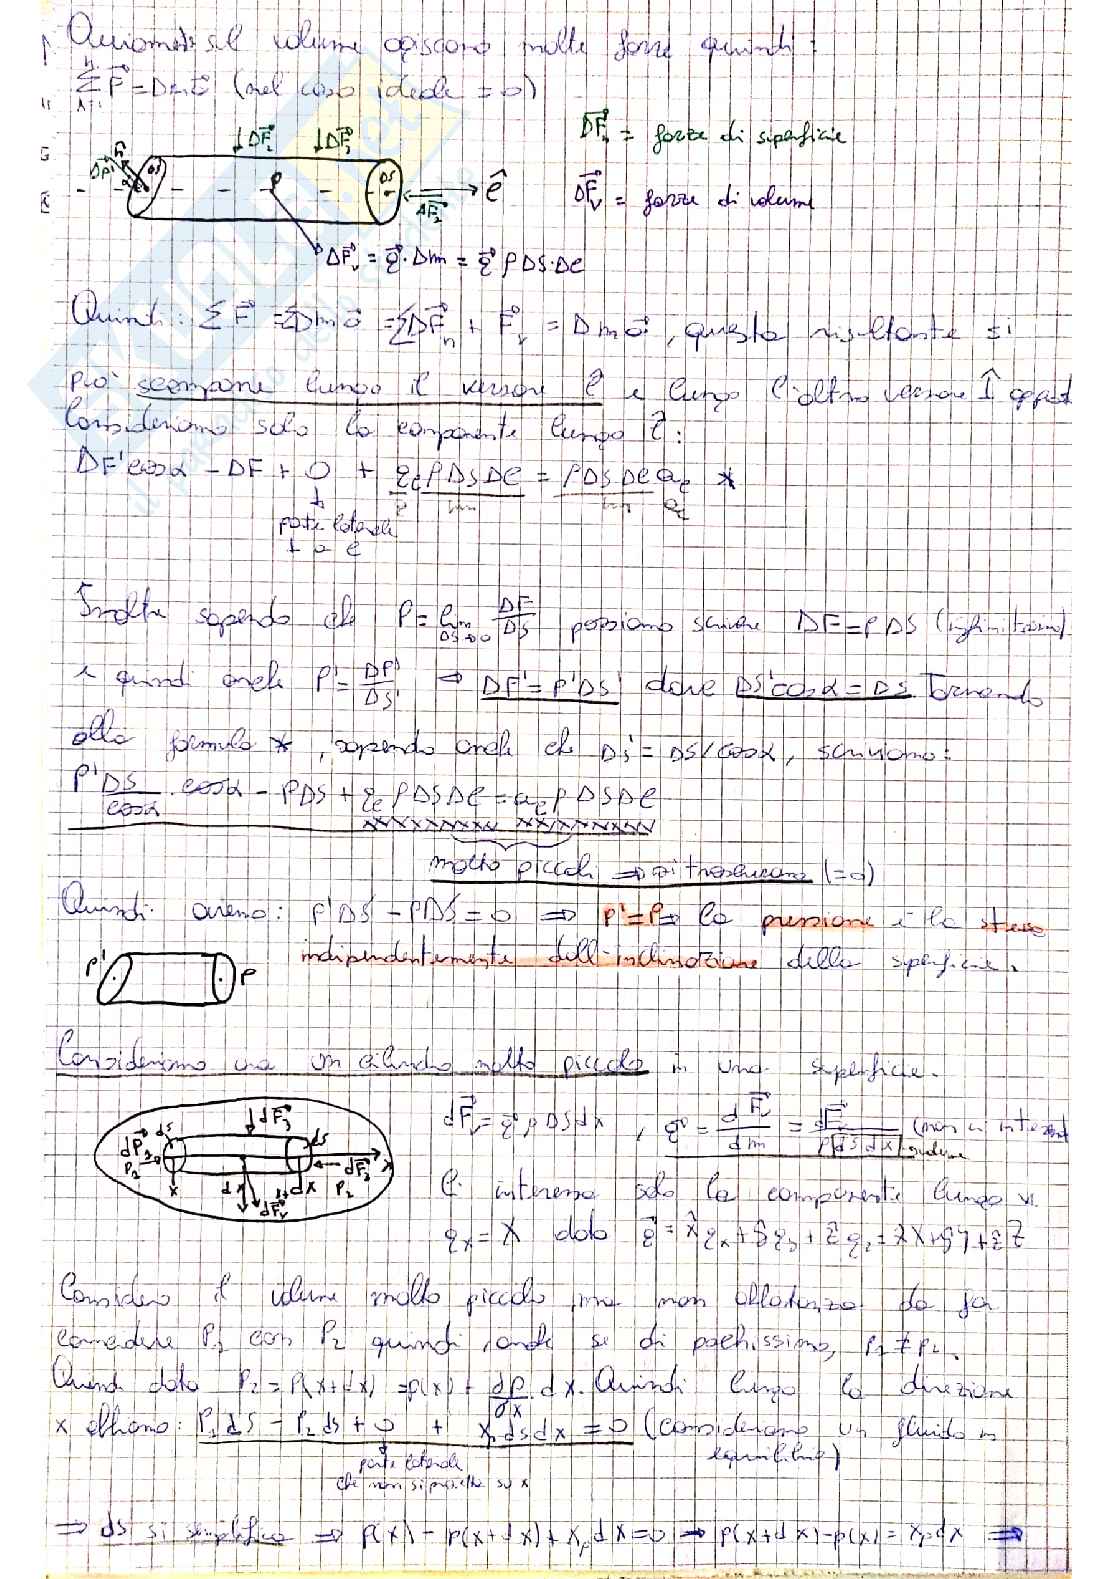 sul volume agiscono molte forze quindi:
Σ F = Dm a (nel caso ideale = 0)
ΔF₂ ΔF₃
ΔFₙ = forze di superficie
ê
ΔF₂
ΔFᵥ = forze di volume
ΔFᵥ = g · Δm = g ρ DS · Dl
Quindi: Σ F = Σ Dm a = Σ DFₙ + Fᵥ = Dm a, questa risultante si
può scomporre lungo il versore ê e lungo l'altro versore
Consideriamo solo la componente lungo ê:
DF' cosα - DF + 0 + ρ DS Dl = ρ DS Dl a *
parte laterale
Inoltre sapendo che P = lim DS→0 DF/DS possiamo scrivere DF = P DS
e quindi anche P' = DF'/DS' → DF' = P'DS' dove DS'cosα = DS. Tornando
alla formula *, sapendo anche che DS' = DS/cosα, scriviamo:
P'DS/cosα · cosα - PDS + ρ DS Dl = a ρ DS Dl
molto piccoli ⇒ si trascurano (=0)
Quindi avremo: P'DS - PDS = 0 ⇒ P' = P ⇒ la pressione è la stessa
indipendentemente dall'inclinazione della superficie.
P' P
Consideriamo ora un cilindro molto piccolo in una superficie.
dFᵥ = g ρ dS dx, g = dFᵥ/dm = dFᵥ/ρ dS dx volume
dS dF₃ dS
P₂ dF₂ P₂ x
x dx dFᵥ
Ci interessa solo la componente lungo x.
gₓ = X dato g = x̂ gₓ + ŷ g_y + ẑ g_z = x̂X + ŷY + ẑZ
Considero il volume molto piccolo, ma non abbastanza da far
coincidere P₁ con P₂ quindi, anche se di pochissimo, P₁ ≠ P₂.
Quindi dato P₂ = P(x+dx) = p(x) + ∂p/∂x dx. Quindi lungo la direzione
x abbiamo: P₁dS - P₂dS + 0 + Xρ dS dx = 0 (consideriamo un fluido in
equilibrio)
parte laterale
che non si proietta su x
⇒ dS si semplifica ⇒ p(x) - p(x+dx) + Xρ dx = 0 → p(x+dx) - p(x) = Xρ dx ⇒